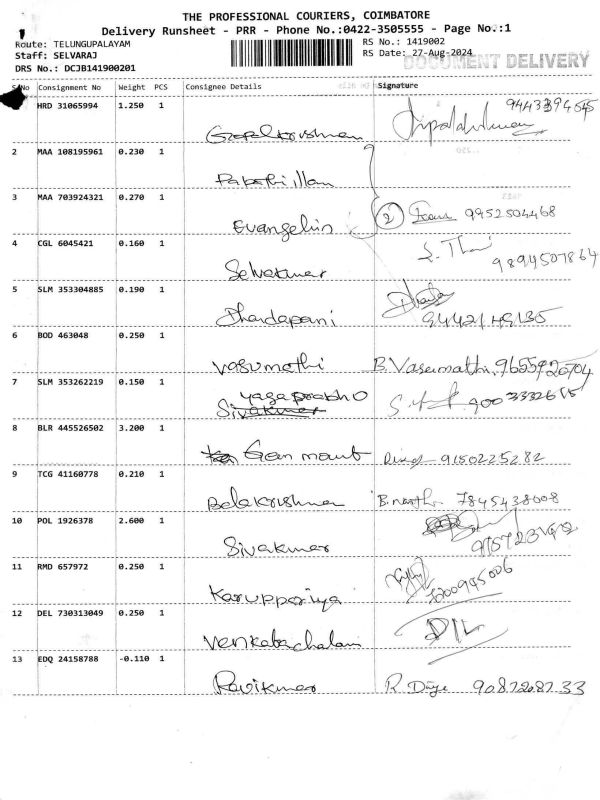 THE PROFESSIONAL COURIERS, COIMBATORE
Delivery Runsheet - PRR - Phone No.:0422-3505555 - Page No.:1
Route: TELUNGUPALAYAM
RS No.: 1419002
Staff: SELVARAJ
RS Date: 27-Aug-2024
DOCUMENT DELIVERY
DRS No.: DCJB141900201
S.No Consignment No Weight PCS Consignee Details Signature
HRD 31065994 1.250 1
Gopalkrishnan
2 MAA 108195961 0.230 1
3 MAA 703924321 0.270 1
Evangelin 2 9952504468
4 CGL 6045421 0.160 1
Selvakumar 9894507864
5 SLM 353304885 0.190 1
Dhandapani
6 BOD 463048 0.250 1
Vasumathi B. Vasumathi. 9655920704
7 SLM 353262219 0.150 1
Sivakumar
8 BLR 445526502 3.200 1
9150225282
9 TCG 41160778 0.210 1
Balakrishnan 7845438008
10 POL 1926378 2.600 1
Sivakumar
11 RMD 657972 0.250 1
Karuppariya 7200995006
12 DEL 730313049 0.250 1
Venkatachalam
13 EDQ 24158788 -0.110 1
Ravikumar 9087208733